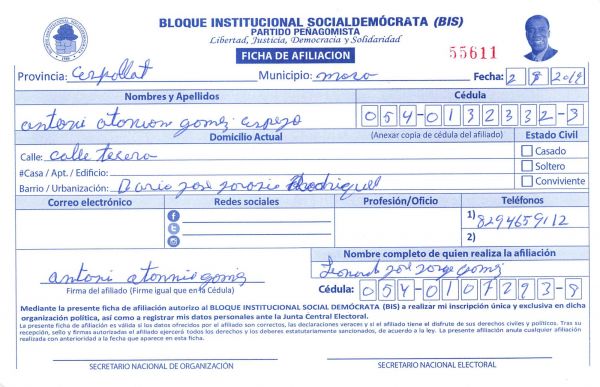 BLOQUE INSTITUCIONAL SOCIALDEMÓCRATA (BIS)
PARTIDO PEÑAGOMISTA
Libertad, Justicia, Democracia y Solidaridad
FICHA DE AFILIACION
55611
Provincia: Espallat Municipio: moso Fecha: 2 8 2019
Nombres y Apellidos Cédula
antoni atonion gomez espejo 054-0132332-3
Domicilio Actual (Anexar copia de cédula del afiliado) Estado Civil
Calle: calle tesera Casado
#Casa / Apt. / Edificio: Soltero
Barrio / Urbanización: Dario jose Rodriguez Conviviente
Correo electrónico Redes sociales Profesión/Oficio Teléfonos
1) 8294659112
2)
Nombre completo de quien realiza la afiliación
antoni atonnio gomez Leonardo jose jorge gomez
Firma del afiliado (Firme igual que en la Cédula) Cédula: 054-0107293-8
Mediante la presente ficha de afiliación autorizo al BLOQUE INSTITUCIONAL SOCIAL DEMÓCRATA (BIS) a realizar mi inscripción única y exclusiva en dicha
organización política, así como a registrar mis datos personales ante la Junta Central Electoral.
La presente ficha de afiliación es válida si los datos ofrecidos por el afiliado son correctos, las declaraciones veraces y si el afiliado tiene el disfrute de sus derechos civiles y políticos. Tras su
recepción, sello y firmas autorizadas el afiliado ejercerá todos los derechos y los deberes estatutariamente sancionados, de acuerdo a la ley. La presente afiliación anula cualquier afiliación
realizada con anterioridad a la fecha que aparece en esta ficha.
SECRETARIO NACIONAL DE ORGANIZACIÓN SECRETARIO NACIONAL ELECTORAL